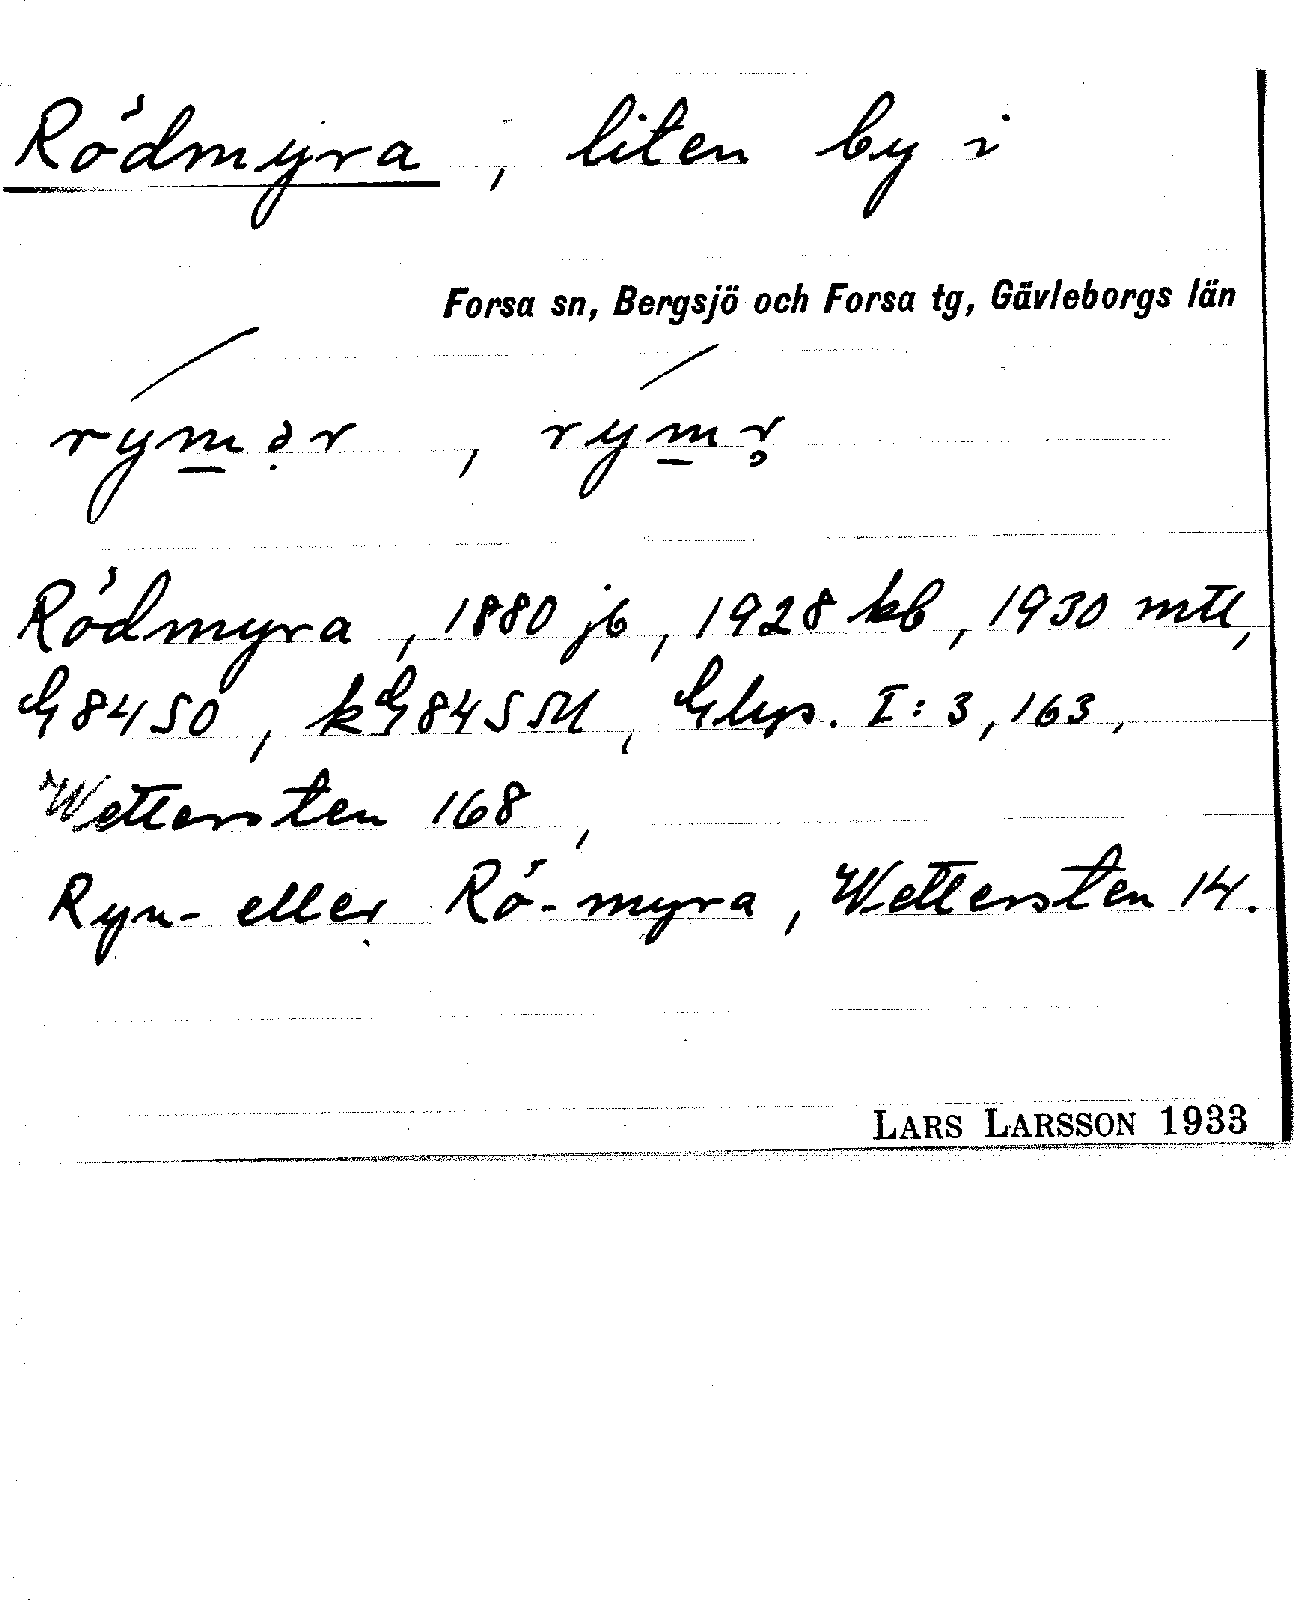 Rödmyra, liten by i
Forsa sn, Bergsjö och Forsa tg, Gävleborgs län
rym̲ər, rym̲r̥
Rödmyra, 1880 jb, 1928 kb, 1930 mtl,
G 84 SO, kG 84 S M, Glys. I: 3, 163,
Wettersten 168,
Ryn- eller Rö-myra, Wettersten 14.
LARS LARSSON 1933